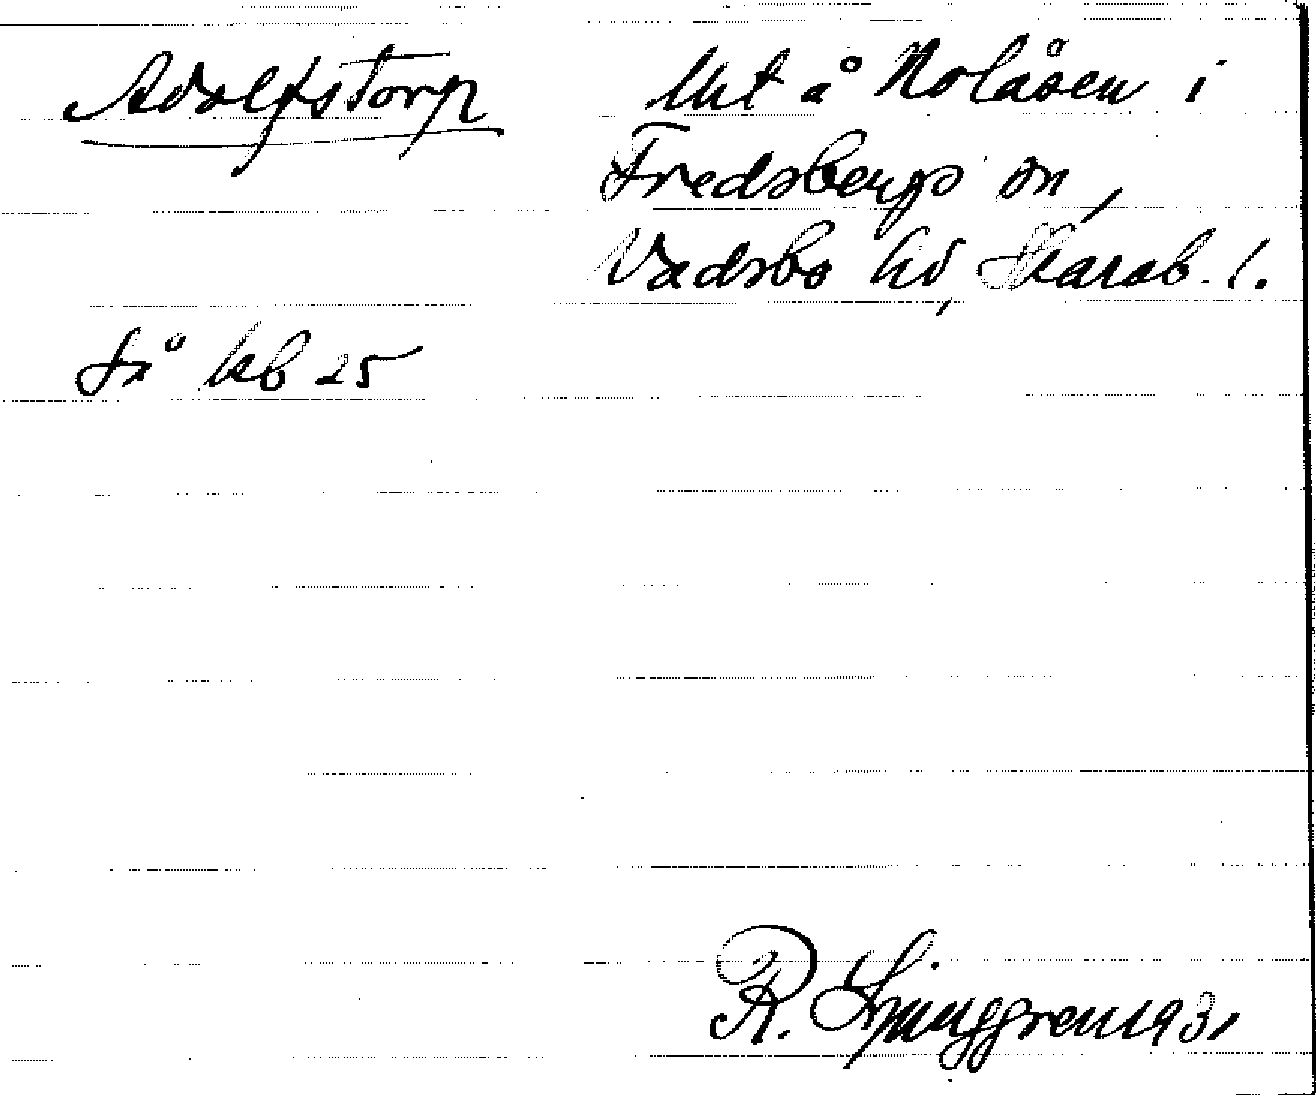 Adolfstorp
Utst å Nolåsen i
Fredsbergs sn,
Vadsbo hd, Skarab. l.
så kb 25
R. Ljunggren 1931